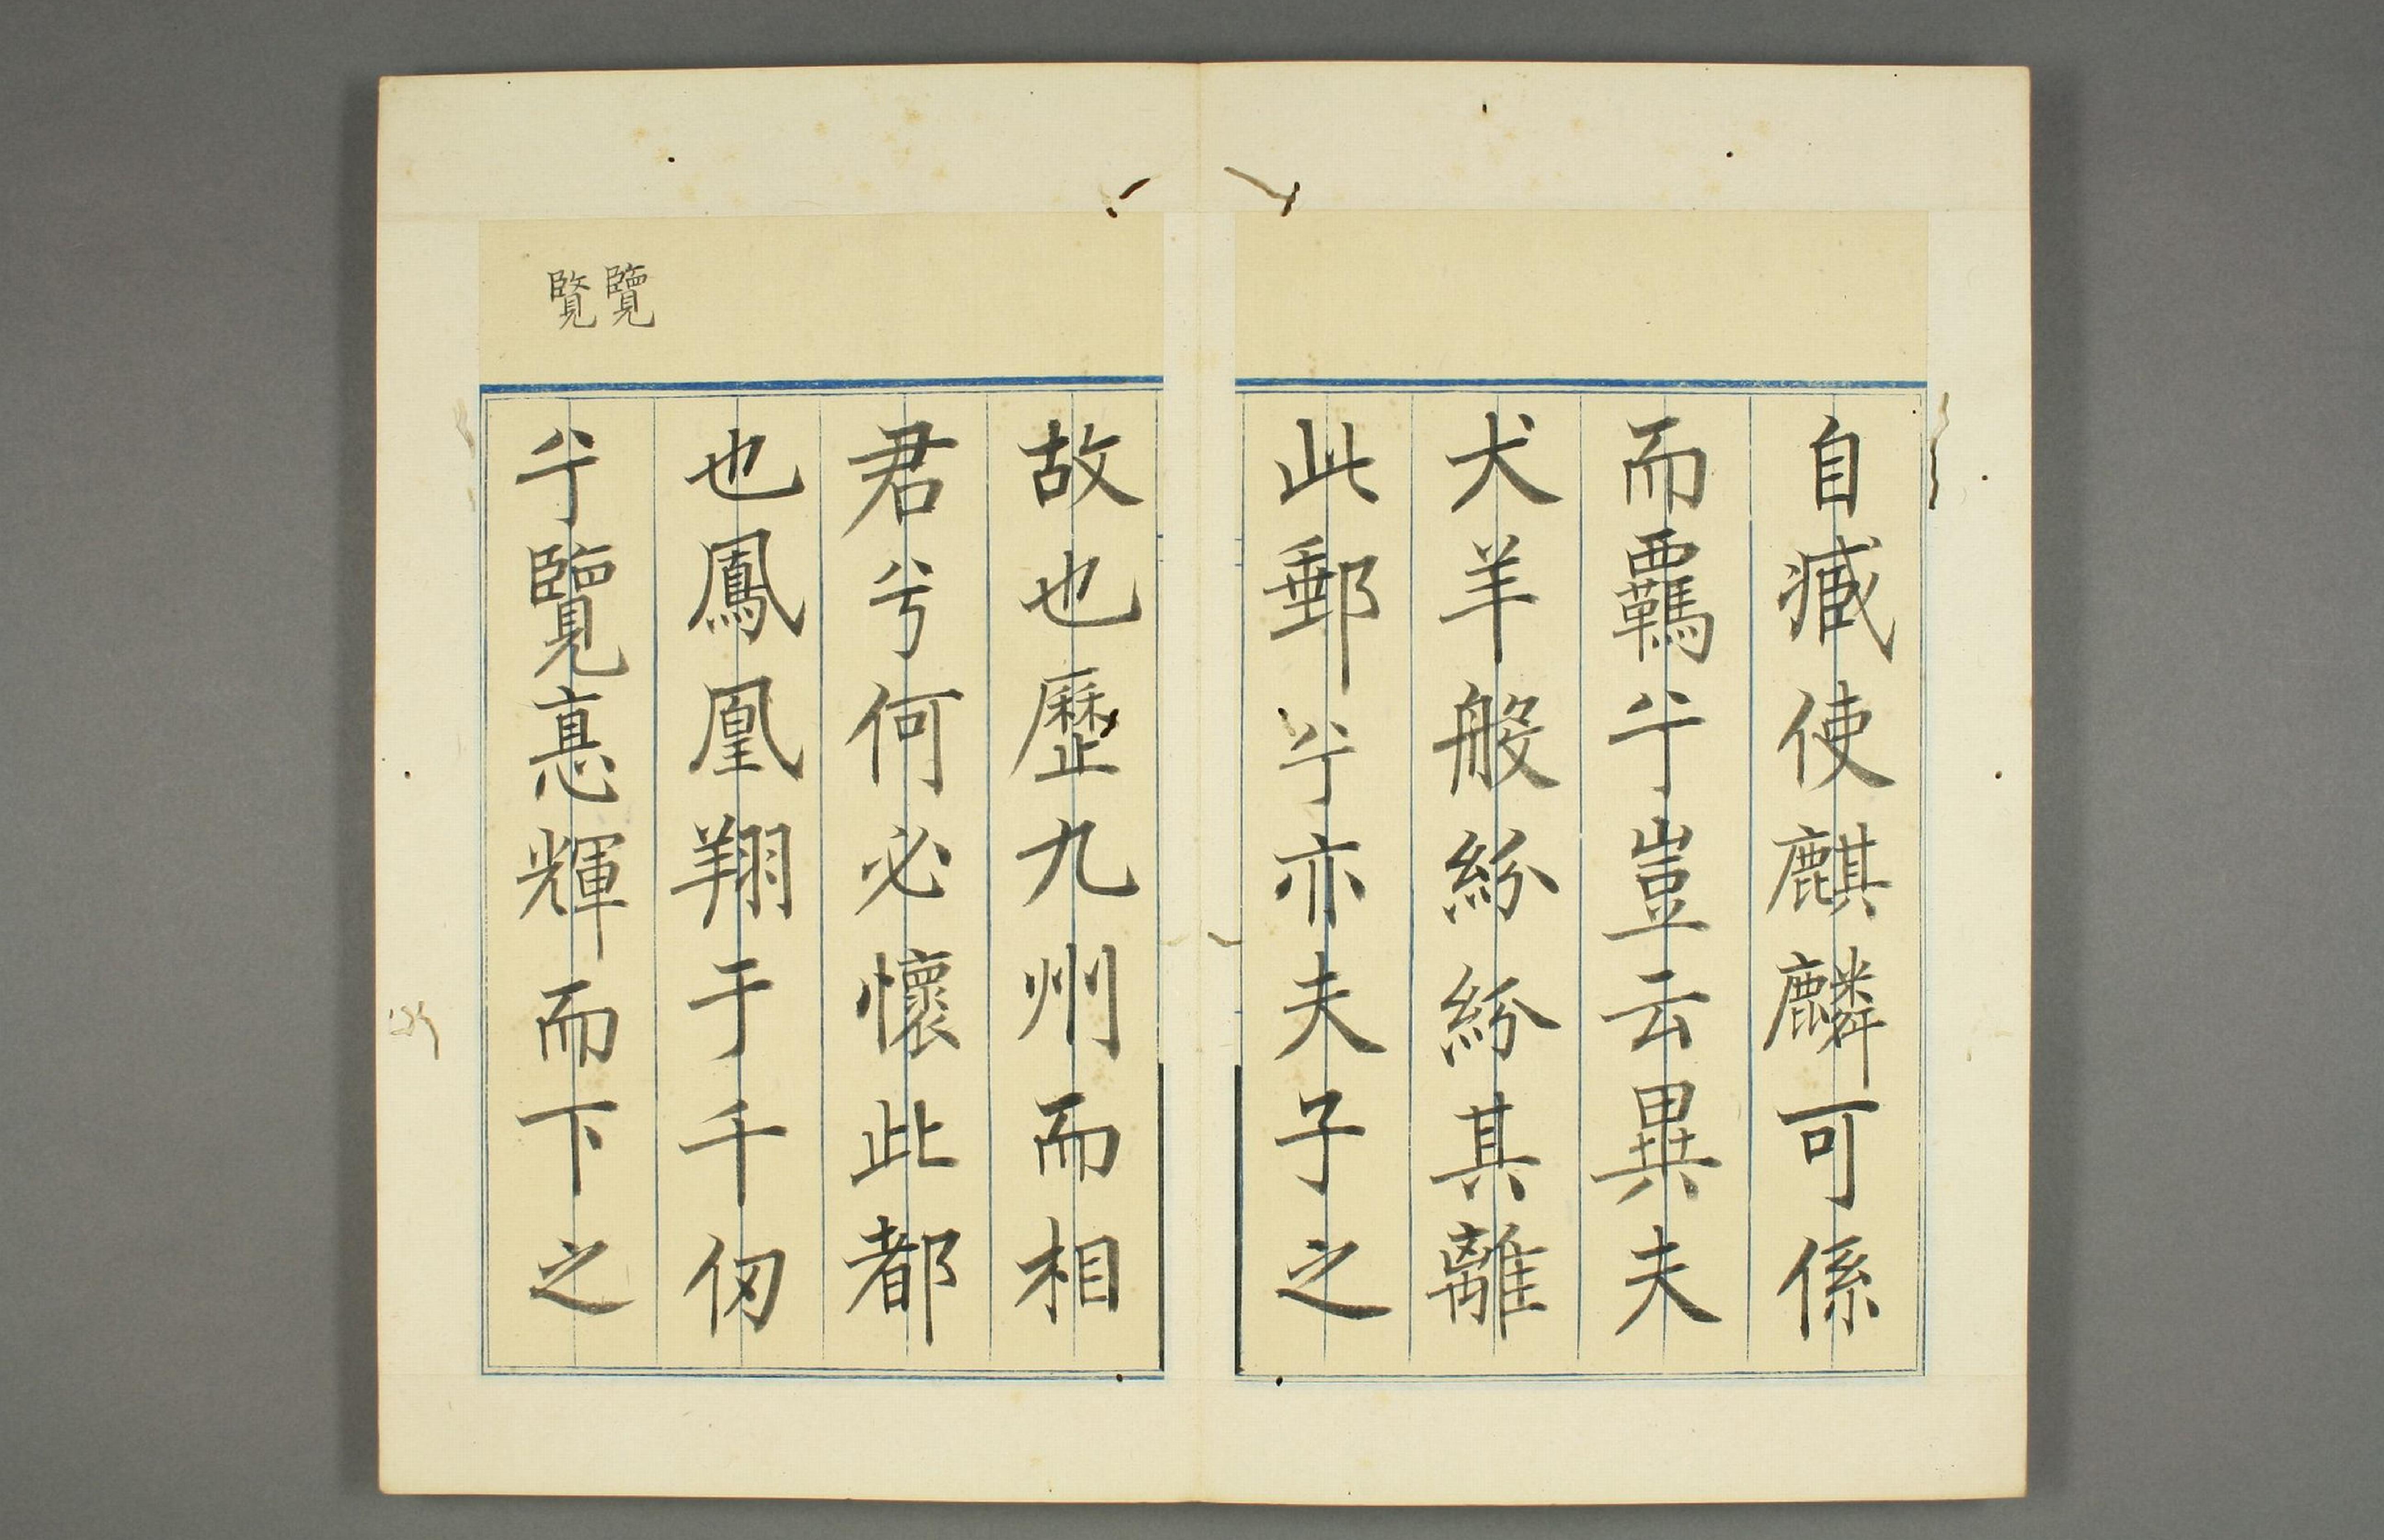 自臧使麒麟可係
而羈兮豈云異夫
犬羊般紛紛其離
此郵兮亦夫子之
故也歷九州而相
君兮何必懷此都
也鳳凰翔于千仞
兮覽悳輝而下之
覽
覧